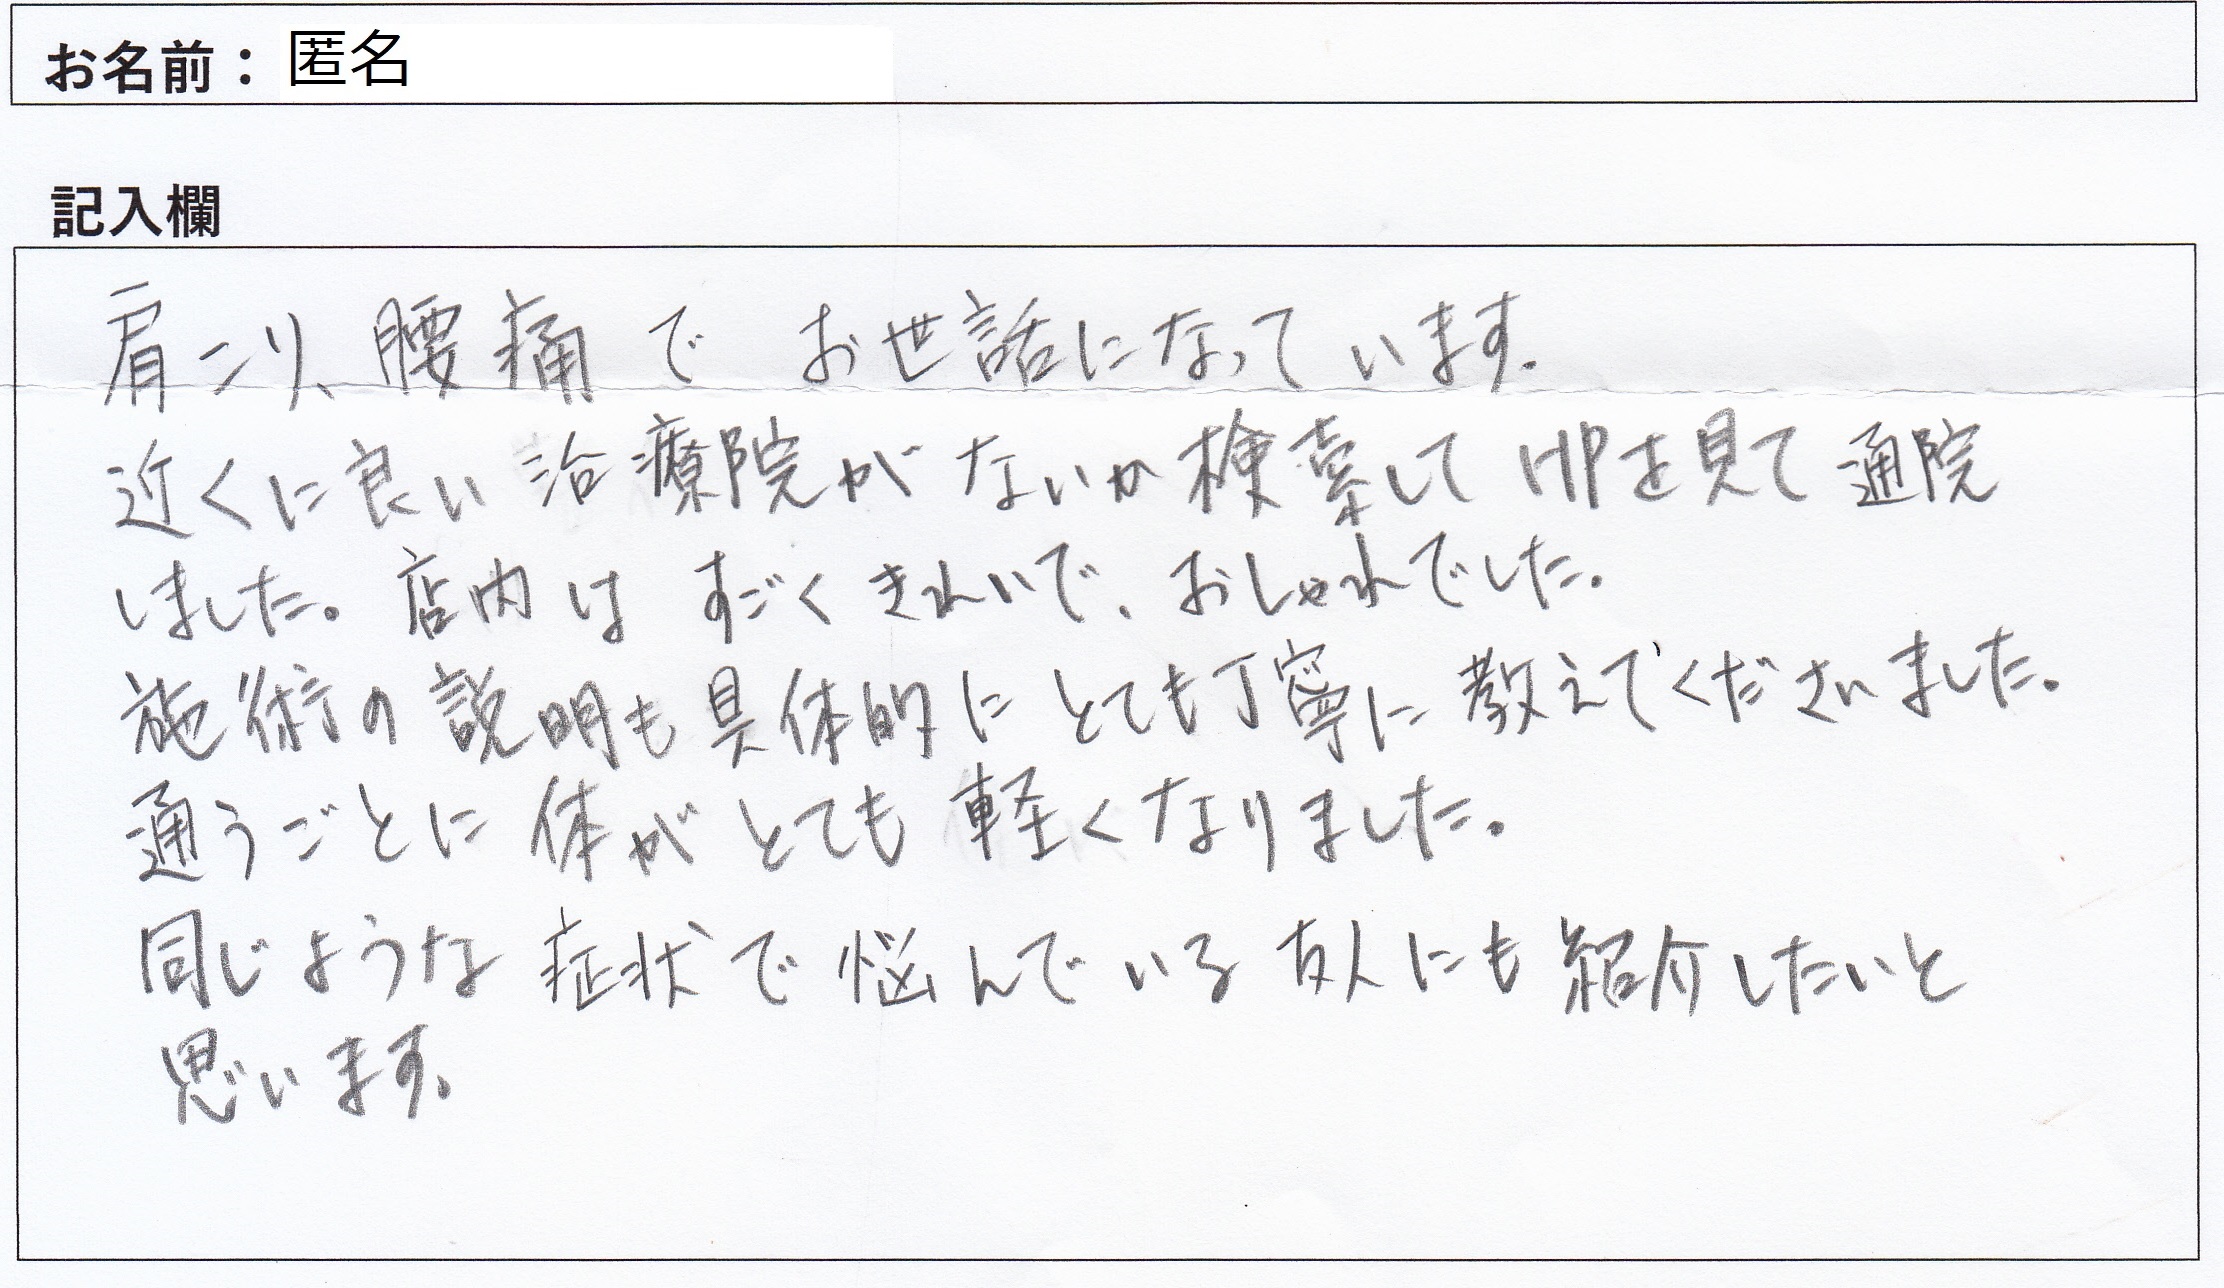 お名前：匿名
記入欄
肩こり、腰痛で お世話になっています。
近くに良い治療院がないか検索してHPを見て通院
しました。店内は すごくきれいで、おしゃれでした。
施術の説明も具体的にとても丁寧に教えてくださいました。
通うごとに体がとても軽くなりました。
同じような症状で悩んでいる友人にも紹介したいと
思います。